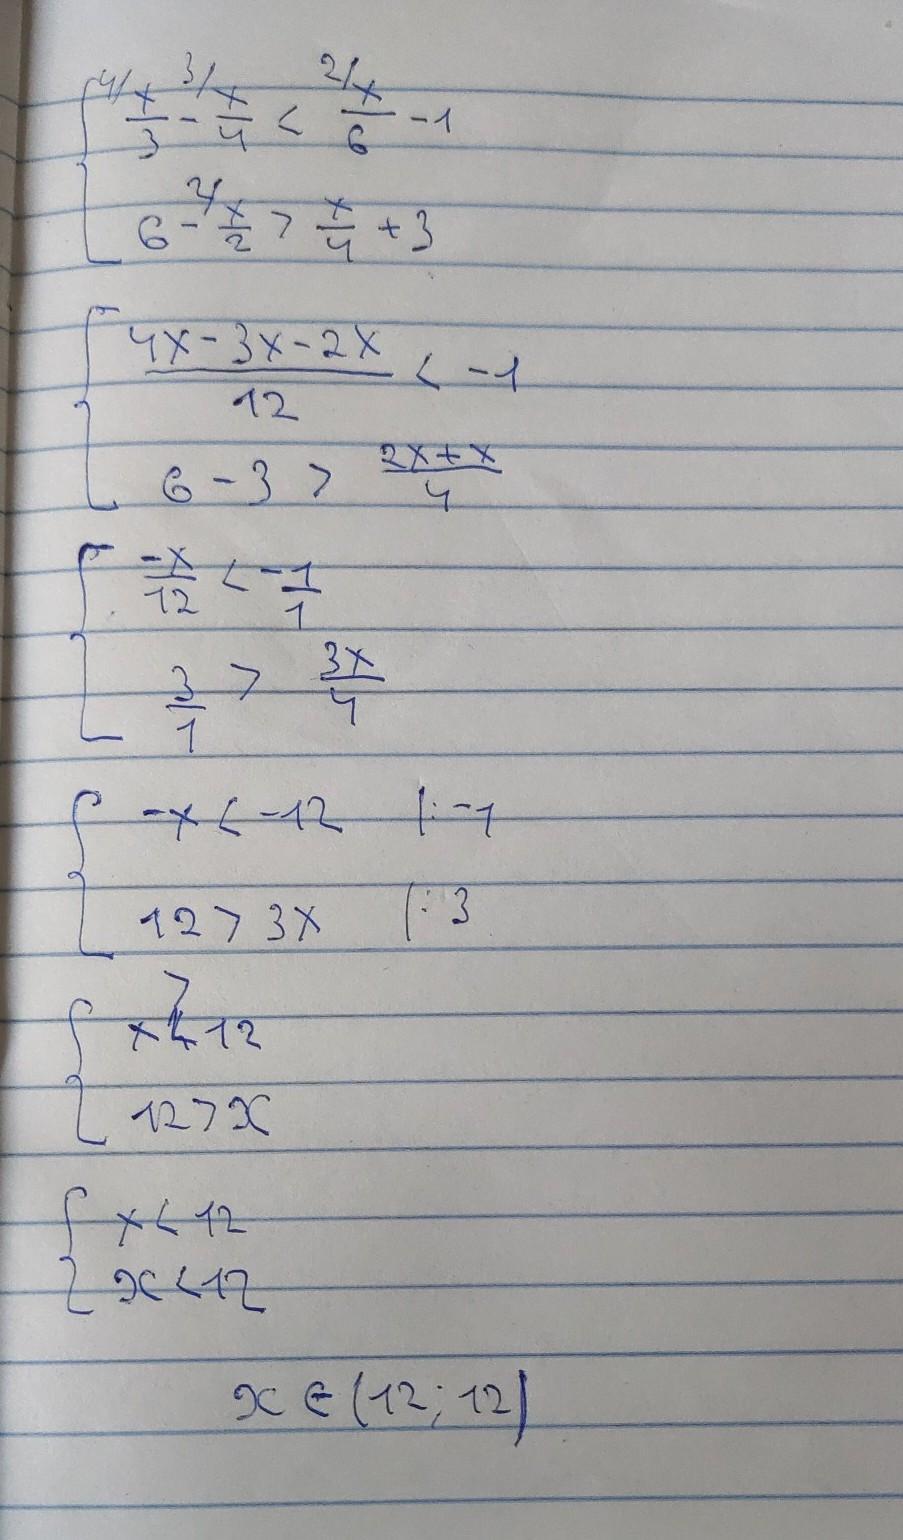 4/ x/3 - 3/ x/4 < 2/ x/6 - 1
6 - 2/ x/2 > x/4 + 3
(4x - 3x - 2x)/12 < -1
6 - 3 > (2x + x)/4
-x/12 < -1/1
3/1 > 3x/4
-x < -12 |: -1
12 > 3x |: 3
>
x < 12
12 > x
x < 12
x < 12
x ∈ (12; 12)